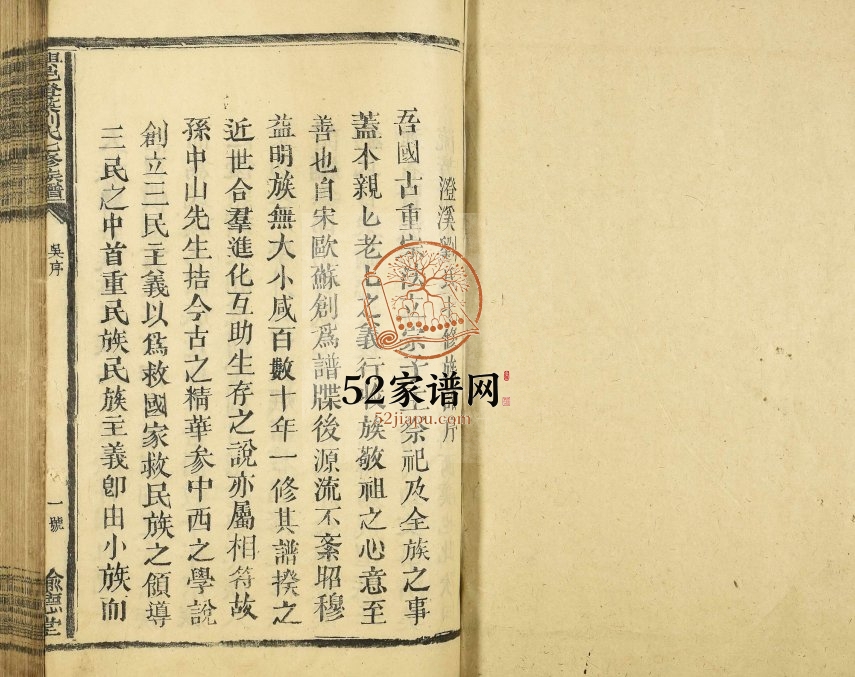 澄溪劉氏七修族譜序
吾國古重宗法立宗主主祭祀及全族之事
蓋本親匕老匕之義行收族敬祖之心意至
善也自宋歐蘇創爲譜牒後源流不紊昭穆
益明族無大小咸百數十年一修其譜揆之
近世合羣進化互助生存之說亦屬相符故
孫中山先生拮今古之精華參中西之學說
創立三民主義以爲救國家救民族之領導
三民之中首重民族民族主義卽由小族而
邑澄溪劉氏七修族譜
吳序
一號
堂
52家谱网
52jiapu.com